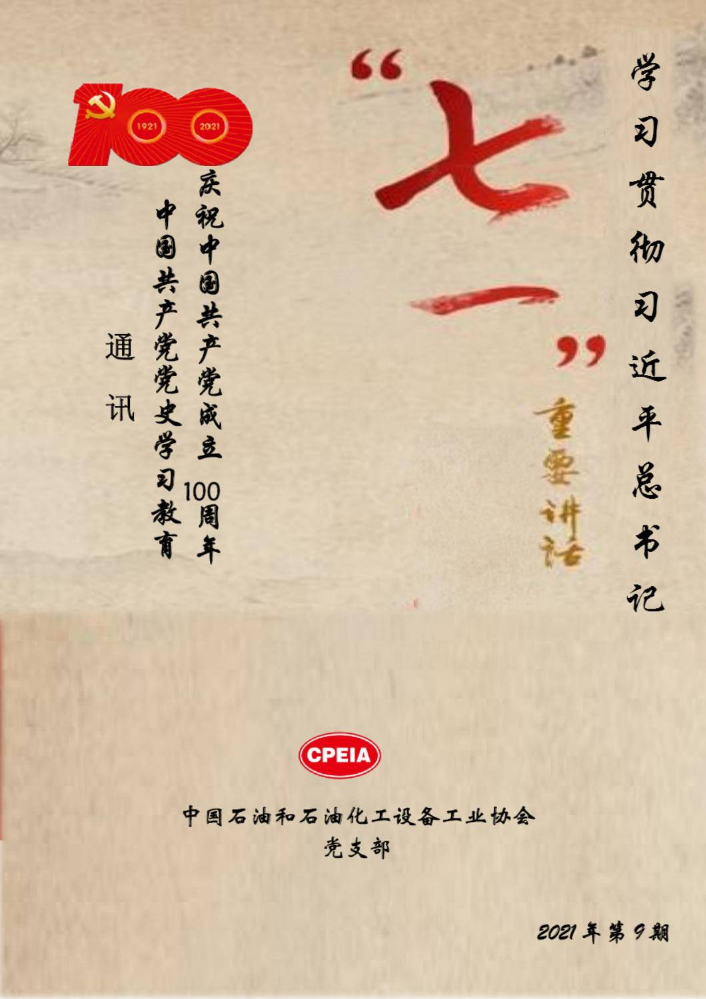 学习贯彻习近平总书记
“七一”
重要讲话
1921
2021
庆祝中国共产党成立100周年
中国共产党党史学习教育
通讯
CPEIA
中国石油和石油化工设备工业协会
党支部
2021年第9期